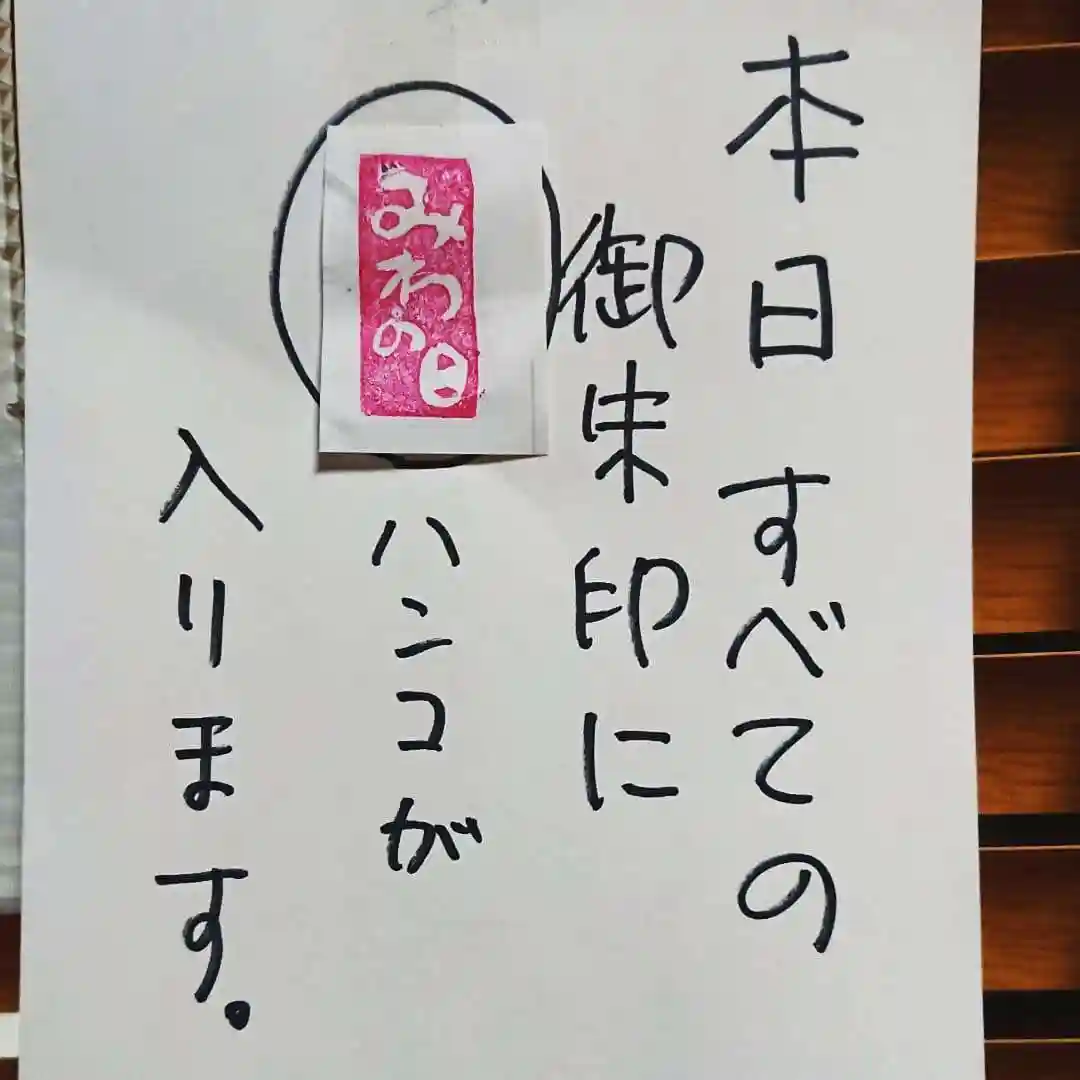 本日すべての
御朱印に
みわの日
ハンコが
入ります。